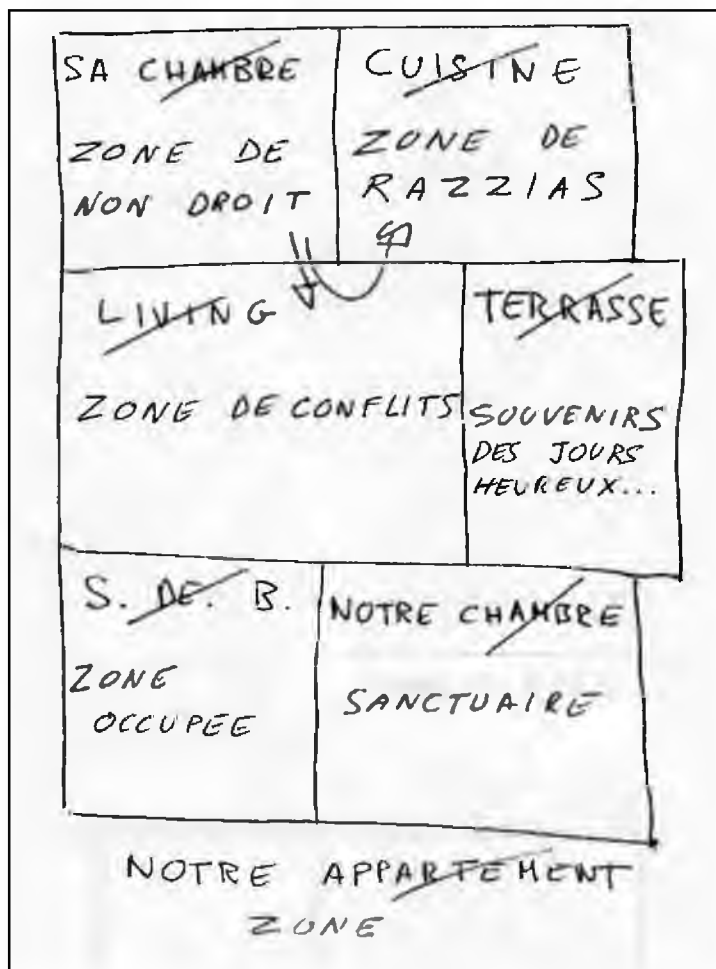 SA CHAMBRE
ZONE DE
NON DROIT
CUISINE
ZONE DE
RAZZIAS
LIVING
ZONE DE CONFLITS
TERRASSE
SOUVENIRS
DES JOURS
HEUREUX...
S. DE. B.
ZONE
OCCUPEE
NOTRE CHAMBRE
SANCTUAIRE
NOTRE APPARTEMENT
ZONE